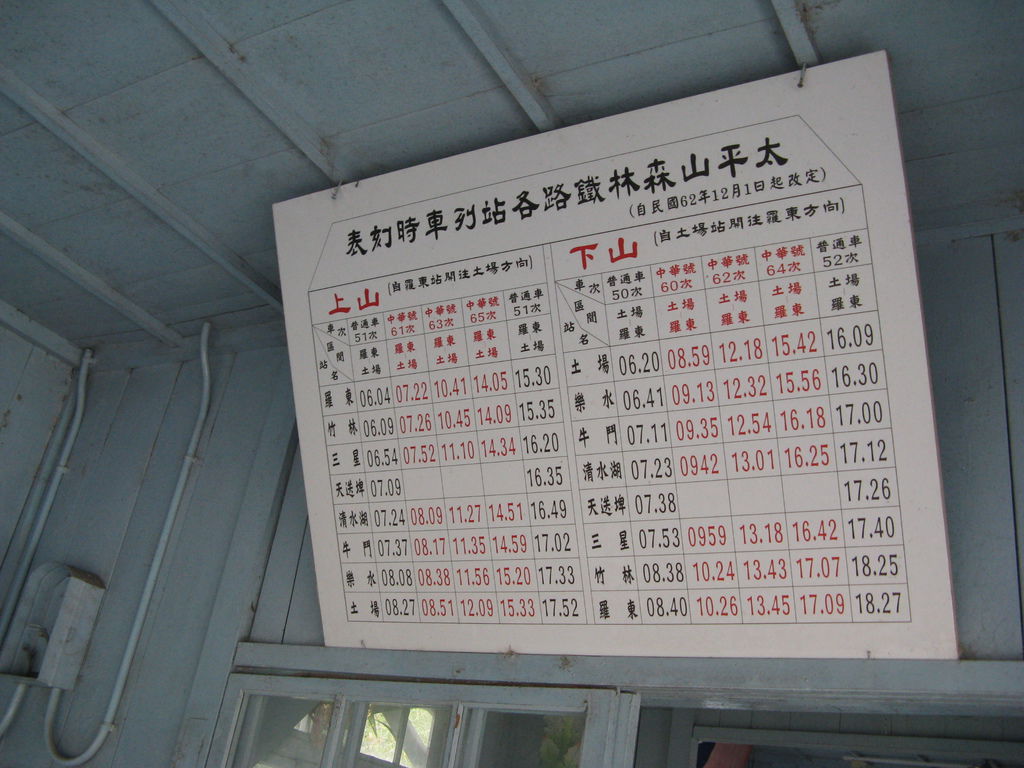 太平山森林鐵路各站列車時刻表
(自民國62年12月1日起改定)
上山 (自羅東站開往土場方向)
車次 普通車51次 中華號61次 中華號63次 中華號65次 普通車51次
區間 羅東土場 羅東土場 羅東土場 羅東土場 羅東土場
站名
羅東 06.04 07.22 10.41 14.05 15.30
竹林 06.09 07.26 10.45 14.09 15.35
三星 06.54 07.52 11.10 14.34 16.20
天送埤 07.09 16.35
清水湖 07.24 08.09 11.27 14.51 16.49
牛鬥 07.37 08.17 11.35 14.59 17.02
樂水 08.08 08.38 11.56 15.20 17.33
土場 08.27 08.51 12.09 15.33 17.52
下山 (自土場站開往羅東方向)
車次 普通車50次 中華號60次 中華號62次 中華號64次 普通車52次
區間 土場羅東 土場羅東 土場羅東 土場羅東 土場羅東
站名
土場 06.20 08.59 12.18 15.42 16.09
樂水 06.41 09.13 12.32 15.56 16.30
牛鬥 07.11 09.35 12.54 16.18 17.00
清水湖 07.23 0942 13.01 16.25 17.12
天送埤 07.38 17.26
三星 07.53 0959 13.18 16.42 17.40
竹林 08.38 10.24 13.43 17.07 18.25
羅東 08.40 10.26 13.45 17.09 18.27